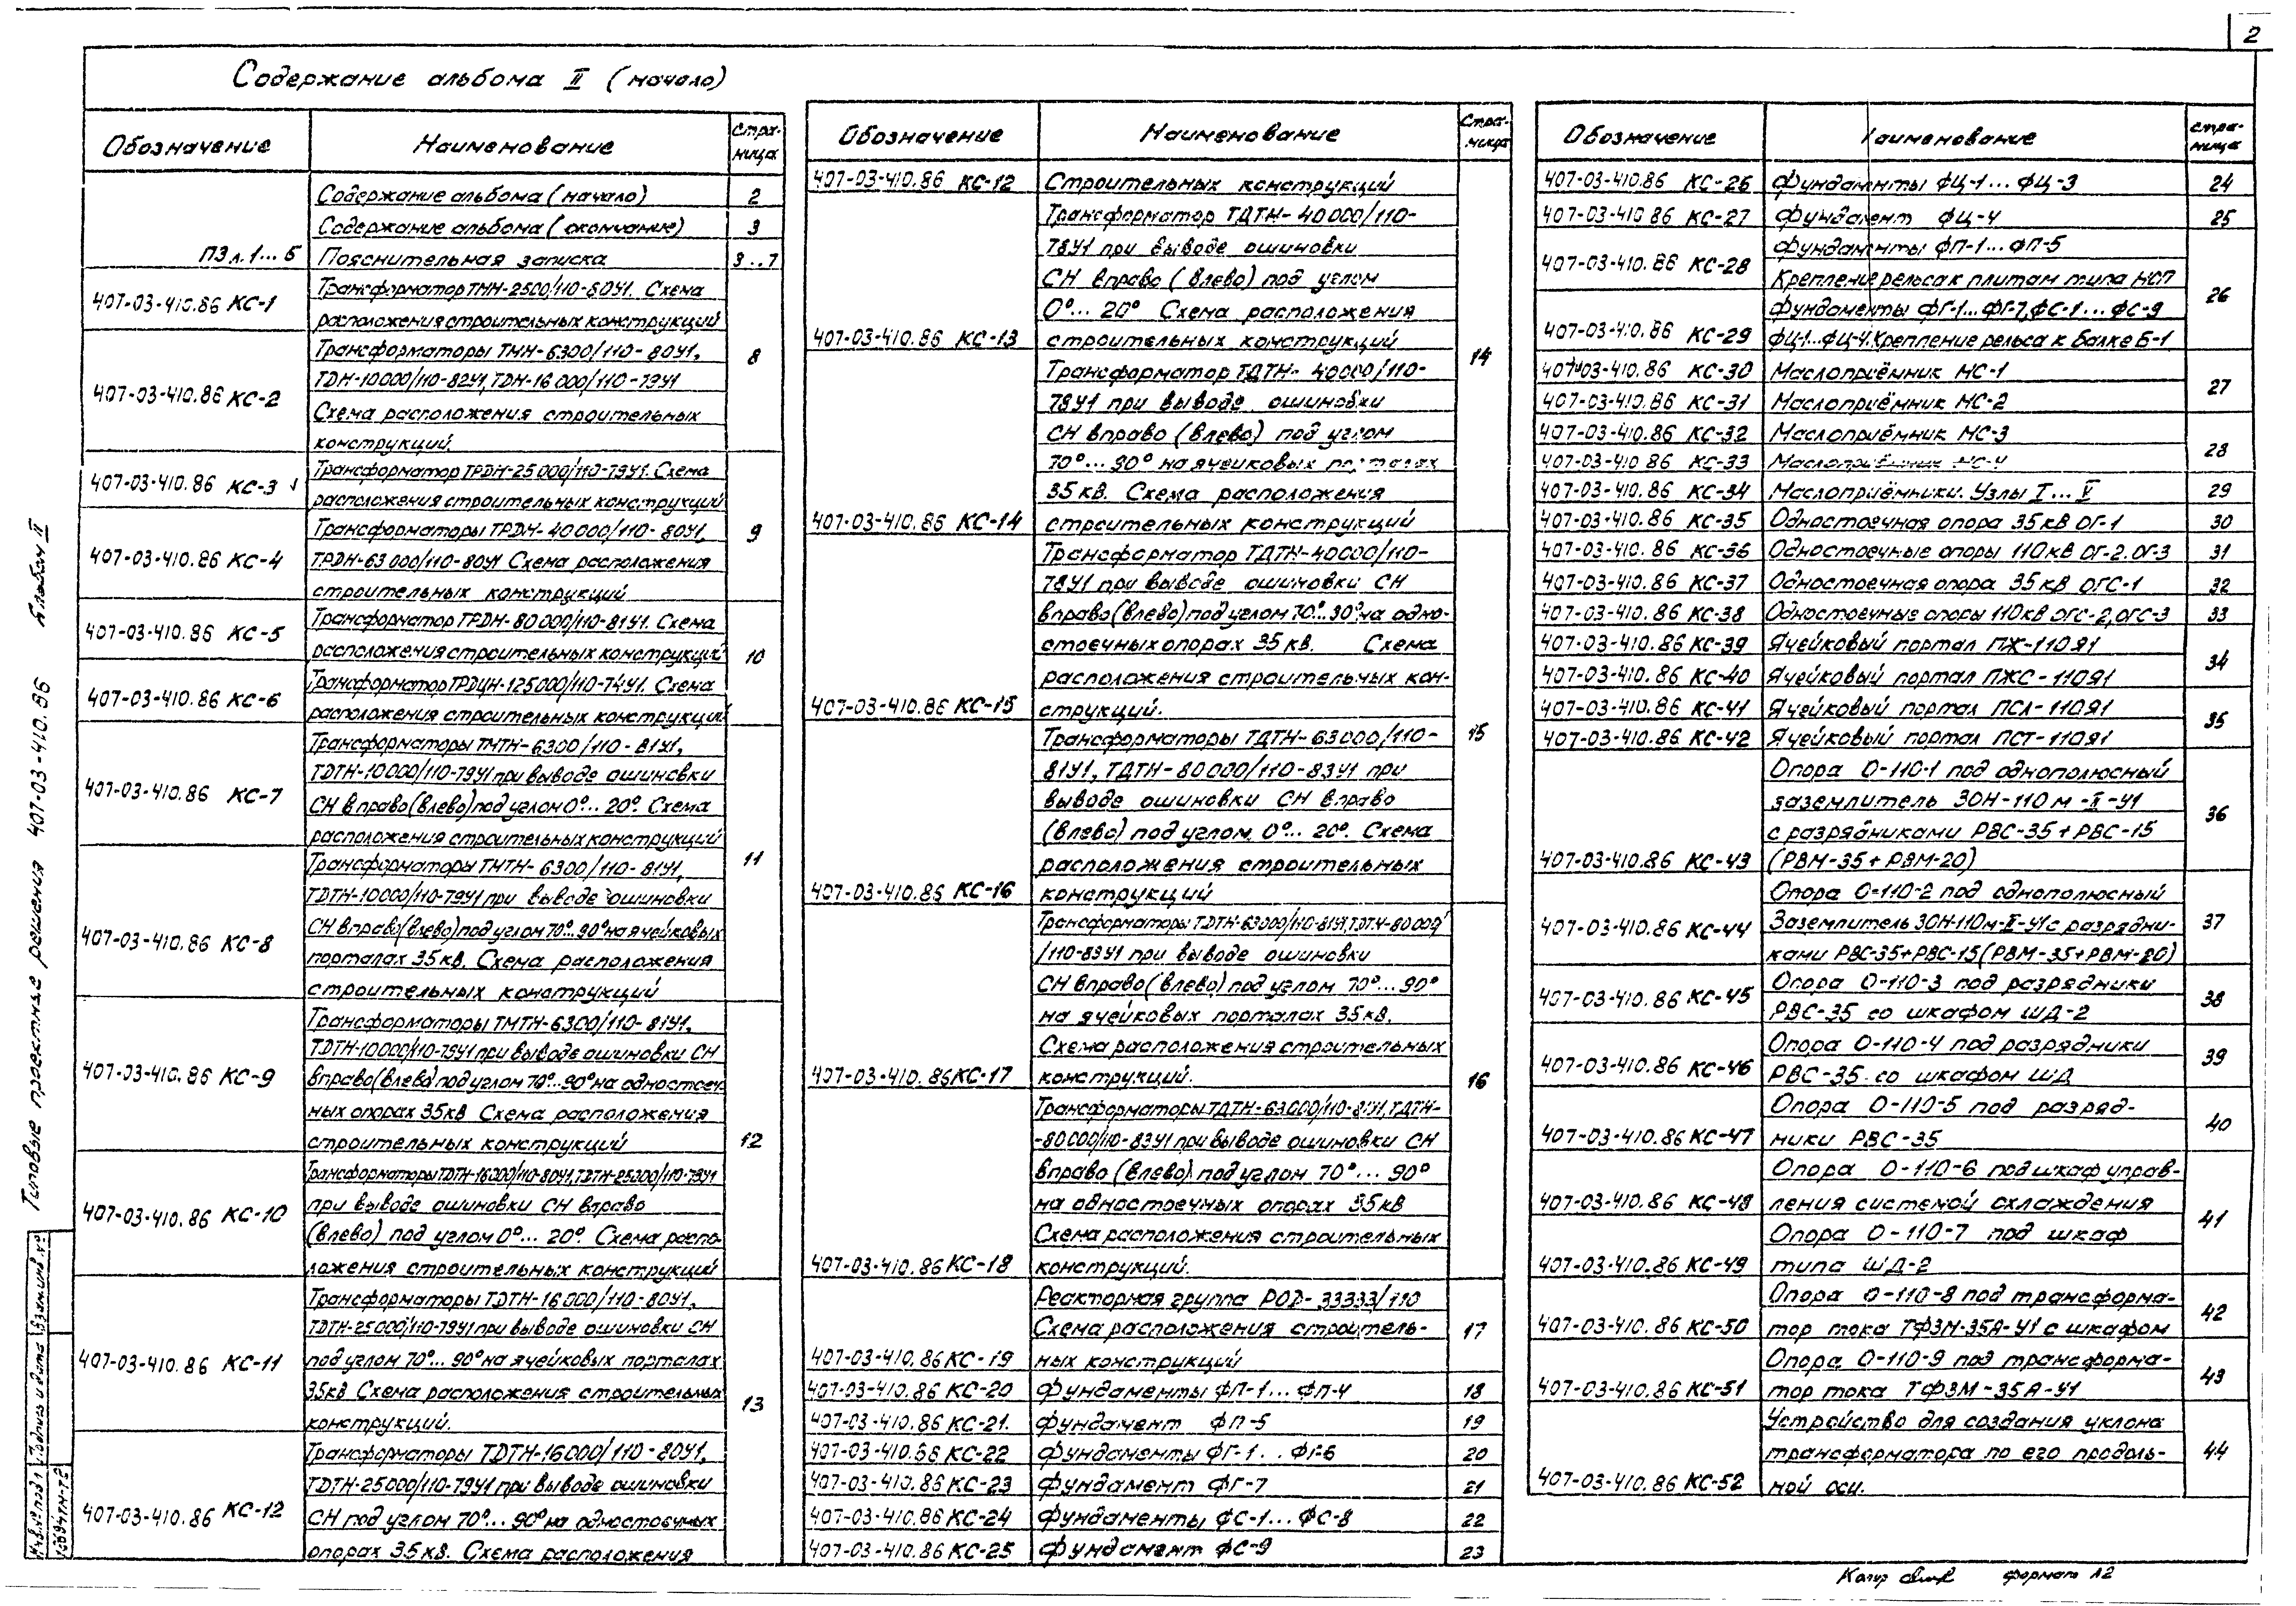 2
Содержание альбома II (начало)
Обозначение
Наименование
Стра-
ница
Содержание альбома (начало)
2
Содержание альбома (окончание)
3
ПЗ л. 1...5
Пояснительная записка
3...7
407-03-410.86 КС-1
Трансформатор ТМН-2500/110-80У1. Схема
расположения строительных конструкций
8
407-03-410.86 КС-2
Трансформаторы ТМН-6300/110-80У1,
ТДН-10000/110-82У1, ТДН-16000/110-79У1
Схема расположения строительных
конструкций.
407-03-410.86 КС-3
Трансформатор ТРДН-25000/110-79У1. Схема
расположения строительных конструкций
9
407-03-410.86 КС-4
Трансформаторы ТРДН-40000/110-80У1,
ТРДН-63000/110-80У1 Схема расположения
строительных конструкций
407-03-410.86 КС-5
Трансформатор ТРДН-80000/110-81У1. Схема
расположения строительных конструкций
10
407-03-410.86 КС-6
Трансформатор ТРДЦН-125000/110-74У1. Схема
расположения строительных конструкций
407-03-410.86 КС-7
Трансформаторы ТМТН-6300/110-81У1,
ТДТН-10000/110-79У1 при выводе ошиновки
СН вправо (влево) под углом 0°...20°. Схема
расположения строительных конструкций
11
407-03-410.86 КС-8
Трансформаторы ТМТН-6300/110-81У1,
ТДТН-10000/110-79У1 при выводе ошиновки
СН вправо (влево) под углом 70°...90° на ячейковых
порталах 35кв. Схема расположения
строительных конструкций
407-03-410.86 КС-9
Трансформаторы ТМТН-6300/110-81У1,
ТДТН-10000/110-79У1 при выводе ошиновки СН
вправо (влево) под углом 70°...90° на одностоеч-
ных опорах 35кв Схема расположения
строительных конструкций
12
407-03-410.86 КС-10
Трансформаторы ТДТН-16000/110-80У1, ТДТН-25000/110-79У1
при выводе ошиновки СН вправо
(влево) под углом 0°...20°. Схема распо-
ложения строительных конструкций
407-03-410.86 КС-11
Трансформаторы ТДТН-16000/110-80У1,
ТДТН-25000/110-79У1 при выводе ошиновки СН
под углом 70°...90° на ячейковых порталах
35кв Схема расположения строительных
конструкций.
13
407-03-410.86 КС-12
Трансформаторы ТДТН-16000/110-80У1,
ТДТН-25000/110-79У1 при выводе ошиновки
СН под углом 70°...90° на одностоечных
опорах 35кв. Схема расположения
Обозначение
Наименование
Стра-
ница
407-03-410.86 КС-12
Строительных конструкций
Трансформатор ТДТН-40000/110-
78У1 при выводе ошиновки
СН вправо (влево) под углом
0°...20° Схема расположения
407-03-410.86 КС-13
строительных конструкций
14
Трансформатор ТДТН-40000/110-
78У1 при выводе ошиновки
СН вправо (влево) под углом
70°...90° на ячейковых порталах
35кв. Схема расположения
407-03-410.86 КС-14
строительных конструкций
Трансформатор ТДТН-40000/110-
78У1 при выводе ошиновки СН
вправо (влево) под углом 70°...90° на одно-
стоечных опорах 35кв. Схема
расположения строительных кон-
407-03-410.86 КС-15
струкций.
15
Трансформаторы ТДТН-63000/110-
81У1, ТДТН-80000/110-83У1 при
выводе ошиновки СН вправо
(влево) под углом 0°...20°. Схема
расположения строительных
407-03-410.86 КС-16
конструкций
Трансформаторы ТДТН-63000/110-81У1, ТДТН-80000
/110-83У1 при выводе ошиновки
СН вправо (влево) под углом 70°...90°
на ячейковых порталах 35кв.
Схема расположения строительных
407-03-410.86 КС-17
конструкций.
16
Трансформаторы ТДТН-63000/110-81У1, ТДТН-
-80000/110-83У1 при выводе ошиновки СН
вправо (влево) под углом 70°...90°
на одностоечных опорах 35кв
Схема расположения строительных
407-03-410.86 КС-18
конструкций.
Реакторная группа РОД-33333/110
Схема расположения строитель-
407-03-410.86 КС-19
ных конструкций
17
407-03-410.86 КС-20
Фундаменты ФП-1...ФП-4
18
407-03-410.86 КС-21.
Фундамент ФП-5
19
407-03-410.86 КС-22
Фундаменты ФГ-1...ФГ-6
20
407-03-410.86 КС-23
Фундамент ФГ-7
21
407-03-410.86 КС-24
Фундаменты ФС-1...ФС-8
22
407-03-410.86 КС-25
Фундамент ФС-9
23
Обозначение
Наименование
Стра-
ница
407-03-410.86 КС-26
Фундаменты ФЦ-1...ФЦ-3
24
407-03-410.86 КС-27
Фундамент ФЦ-4
25
407-03-410.86 КС-28
Фундаменты ФП-1...ФП-5
Крепление рельса к плитам типа НСП
26
407-03-410.86 КС-29
Фундаменты ФГ-1...ФГ-7, ФС-1...ФС-9
ФЦ-1...ФЦ-4. Крепление рельса к балке Б-1
407-03-410.86 КС-30
Маслоприёмник МС-1
27
407-03-410.86 КС-31
Маслоприёмник МС-2
407-03-410.86 КС-32
Маслоприёмник МС-3
28
407-03-410.86 КС-33
Маслоприёмник МС-4
407-03-410.86 КС-34
Маслоприёмники. Узлы I...V
29
407-03-410.86 КС-35
Одностоечная опора 35кв ОГ-1
30
407-03-410.86 КС-36
Одностоечные опоры 110кв ОГ-2, ОГ-3
31
407-03-410.86 КС-37
Одностоечная опора 35кв ОГС-1
32
407-03-410.86 КС-38
Одностоечные опоры 110кв ОГС-2, ОГС-3
33
407-03-410.86 КС-39
Ячейковый портал ПЖ-110Я1
34
407-03-410.86 КС-40
Ячейковый портал ПЖС-110Я1
407-03-410.86 КС-41
Ячейковый портал ПСЛ-110Я1
35
407-03-410.86 КС-42
Ячейковый портал ПСТ-110Я1
Опора О-110-1 под однополюсный
заземлитель ЗОН-110м-II-У1
с разрядниками РВС-35+РВС-15
407-03-410.86 КС-43
(РВМ-35+РВМ-20)
36
Опора О-110-2 под однополюсный
407-03-410.86 КС-44
Заземлитель ЗОН-110м-II-У1 с разрядни-
ками РВС-35+РВС-15 (РВМ-35+РВМ-20)
37
407-03-410.86 КС-45
Опора О-110-3 под разрядники
РВС-35 со шкафом ШД-2
38
407-03-410.86 КС-46
Опора О-110-4 под разрядники
РВС-35 со шкафом ШД
39
Опора О-110-5 под разряд-
407-03-410.86 КС-47
ники РВС-35
40
Опора О-110-6 под шкаф управ-
407-03-410.86 КС-48
ления системой охлаждения
41
Опора О-110-7 под шкаф
407-03-410.86 КС-49
типа ШД-2
Опора О-110-8 под трансформа-
407-03-410.86 КС-50
тор тока ТФЗМ-35А-У1 с шкафом
42
Опора О-110-9 под трансформа-
407-03-410.86 КС-51
тор тока ТФЗМ-35А-У1
43
Устройство для создания уклона
трансформатора по его продоль-
407-03-410.86 КС-52
ной оси.
44
Типовые проектные решения 407-03-410.86 Альбом II
Инв.№ подл
Подпись и дата
Взам.инв.№
Копир
Формат А2